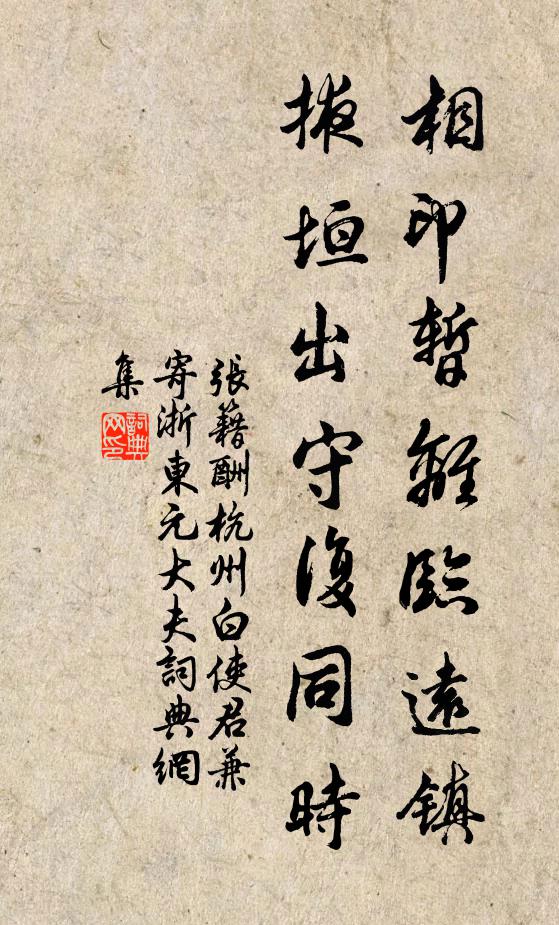 相印暫離臨遠鎮
掖垣出守復同時
張籍酬杭州白使君兼
寄浙東元大夫詞典網
集
詞典网印